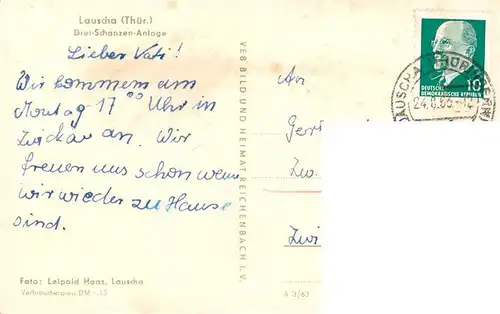 Lauscha (Thür.)
Drei-Schanzen-Anlage
Lieber Vati!
Wir kommen am
Montag 17 00 Uhr in
Zwickau an. Wir
freuen uns schon wenn
wir wieder zu Hause
sind.
Foto: Leipold Haas, Lauscha
Verbraucherpreis DM -,25
VEB BILD UND HEIMAT REICHENBACH I. V.
A 3/63
An
Zw.
10
DEUTSCHE
DEMOKRATISCHE REPUBLIK
LAUSCHA